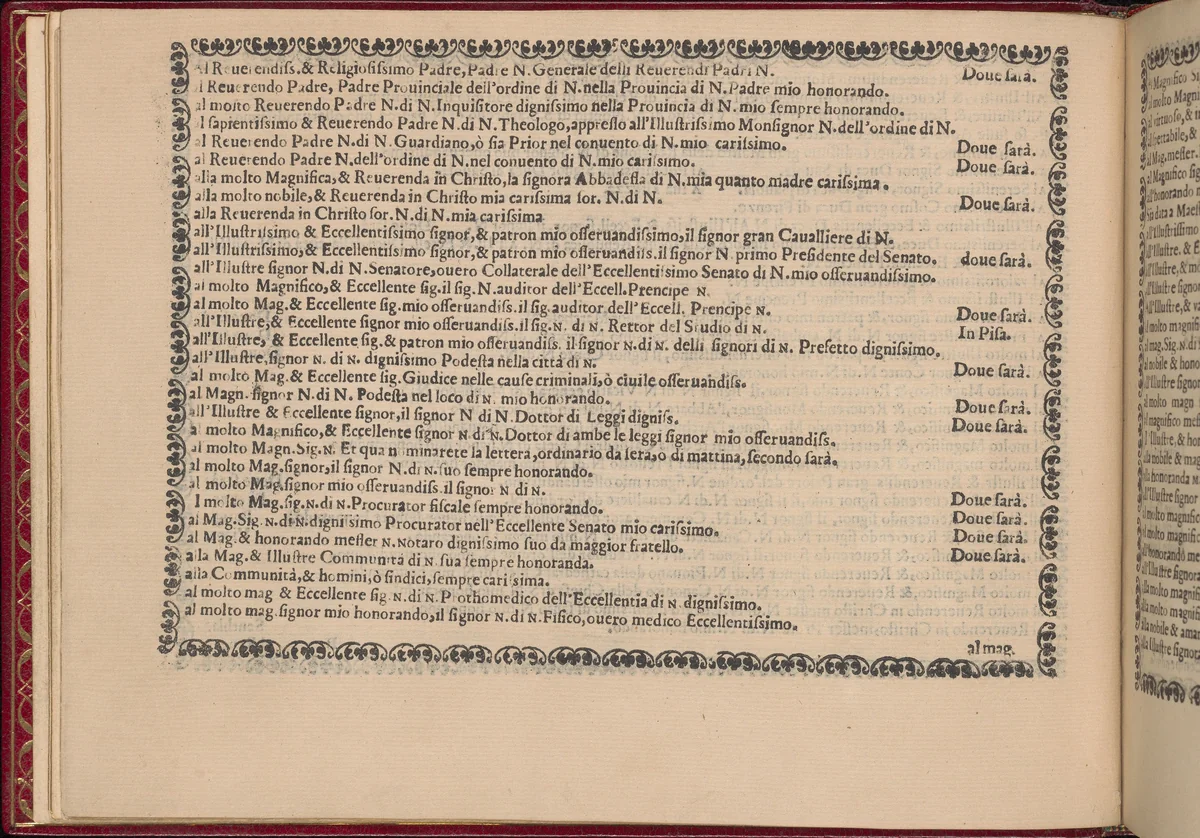 Al Reuerendiſs.& Religioſiſsimo Padre, Padre N. Generale delli Reuerendi Padri N. Doue ſarà.
al Reuerendo Padre, Padre Prouinciale dell'ordine di N. nella Prouincia di N. Padre mio honorando.
al molto Reuerendo Padre N. di N. Inquiſitore digniſsimo nella Prouincia di N. mio ſempre honorando.
al ſapientiſsimo & Reuerendo Padre N. di N. Theologo, appreſſo all'Illuſtriſsimo Monſignor N. dell'ordine di N.
al Reuerendo Padre N. di N. Guardiano, ò ſia Prior nel conuento di N. mio cariſsimo. Doue ſarà.
al Reuerendo Padre N. dell'ordine di N. nel conuento di N. mio cariſsimo. Doue ſarà.
alla molto Magnifica, & Reuerenda in Chriſto, la ſignora Abbadeſſa di N. mia quanto madre cariſsima.
alla molto nobile, & Reuerenda in Chriſto mia cariſsima ſor. N. di N. Doue ſarà.
alla Reuerenda in Chriſto ſor. N. di N. mia cariſsima
all'Illuſtriſsimo & Eccellentiſsimo ſignor, & patron mio oſſeruandiſsimo, il ſignor gran Caualliere di N.
all'Illuſtriſsimo, & Eccellentiſsimo ſignor, & patron mio oſſeruandiſs. il ſignor N. primo Preſidente del Senato. doue ſarà.
all'Illuſtre ſignor N. di N. Senatore, ouero Collaterale dell'Eccellentiſsimo Senato di N. mio oſſeruandiſsimo.
al molto Magnifico, & Eccellente ſig. il ſig N. auditor dell'Eccell. Prencipe N.
al molto Mag. & Eccellente ſig. mio oſſeruandiſs. il ſig. auditor dell'Eccell. Prencipe N. Doue ſarà.
all'Illuſtre, & Eccellente ſignor mio oſſeruandiſs. il ſig. N. di N. Rettor del Studio di N. In Piſa.
all'Illuſtre, & Eccellente ſig. & patron mio oſſeruandiſs. il ſignor N. di N. delli ſignori di N. Prefetto digniſsimo.
all'Illuſtre, ſignor N. di N. digniſsimo Podeſta nella città di N. Doue ſarà.
al molto Mag. & Eccellente ſig. Giudice nelle cauſe criminali, ò ciuile oſſeruandiſs.
al Magn. ſignor N. di N. Podeſta nel loco di N. mio honorando. Doue ſarà.
all'Illuſtre & Eccellente ſignor, il ſignor N di N. Dottor di Leggi digniſs. Doue ſarà.
al molto Magnifico, & Eccellente ſignor N di N. Dottor di ambe le leggi ſignor mio oſſeruandiſs.
al molto Magn. Sig. N. Et qua nominarete la lettera, ordinario da ſera, ò di mattina, ſecondo ſarà.
al molto Mag. ſignor, il ſignor N. di N. ſuo ſempre honorando.
al molto Mag. ſignor mio oſſeruandiſs. il ſignor N di N.
al molto Mag. ſig. N. di N. Procurator fiſcale ſempre honorando. Doue ſarà.
al Mag. Sig. N. di N. digniſsimo Procurator nell'Eccellente Senato mio cariſsimo. Doue ſarà.
al Mag. & honorando meſſer N. Notaro digniſsimo ſuo da maggior fratello. Doue ſarà.
alla Mag. & Illuſtre Communità di N. ſua ſempre honoranda. Doue ſarà.
alla Communità, & homini, ò ſindici, ſempre cariſsima.
al molto mag & Eccellente ſig. N. di N. Prothomedico dell'Eccellentia di N. digniſsimo.
al molto mag. ſignor mio honorando, il ſignor N. di N. Fiſico, ouero medico Eccellentiſsimo.
al mag.